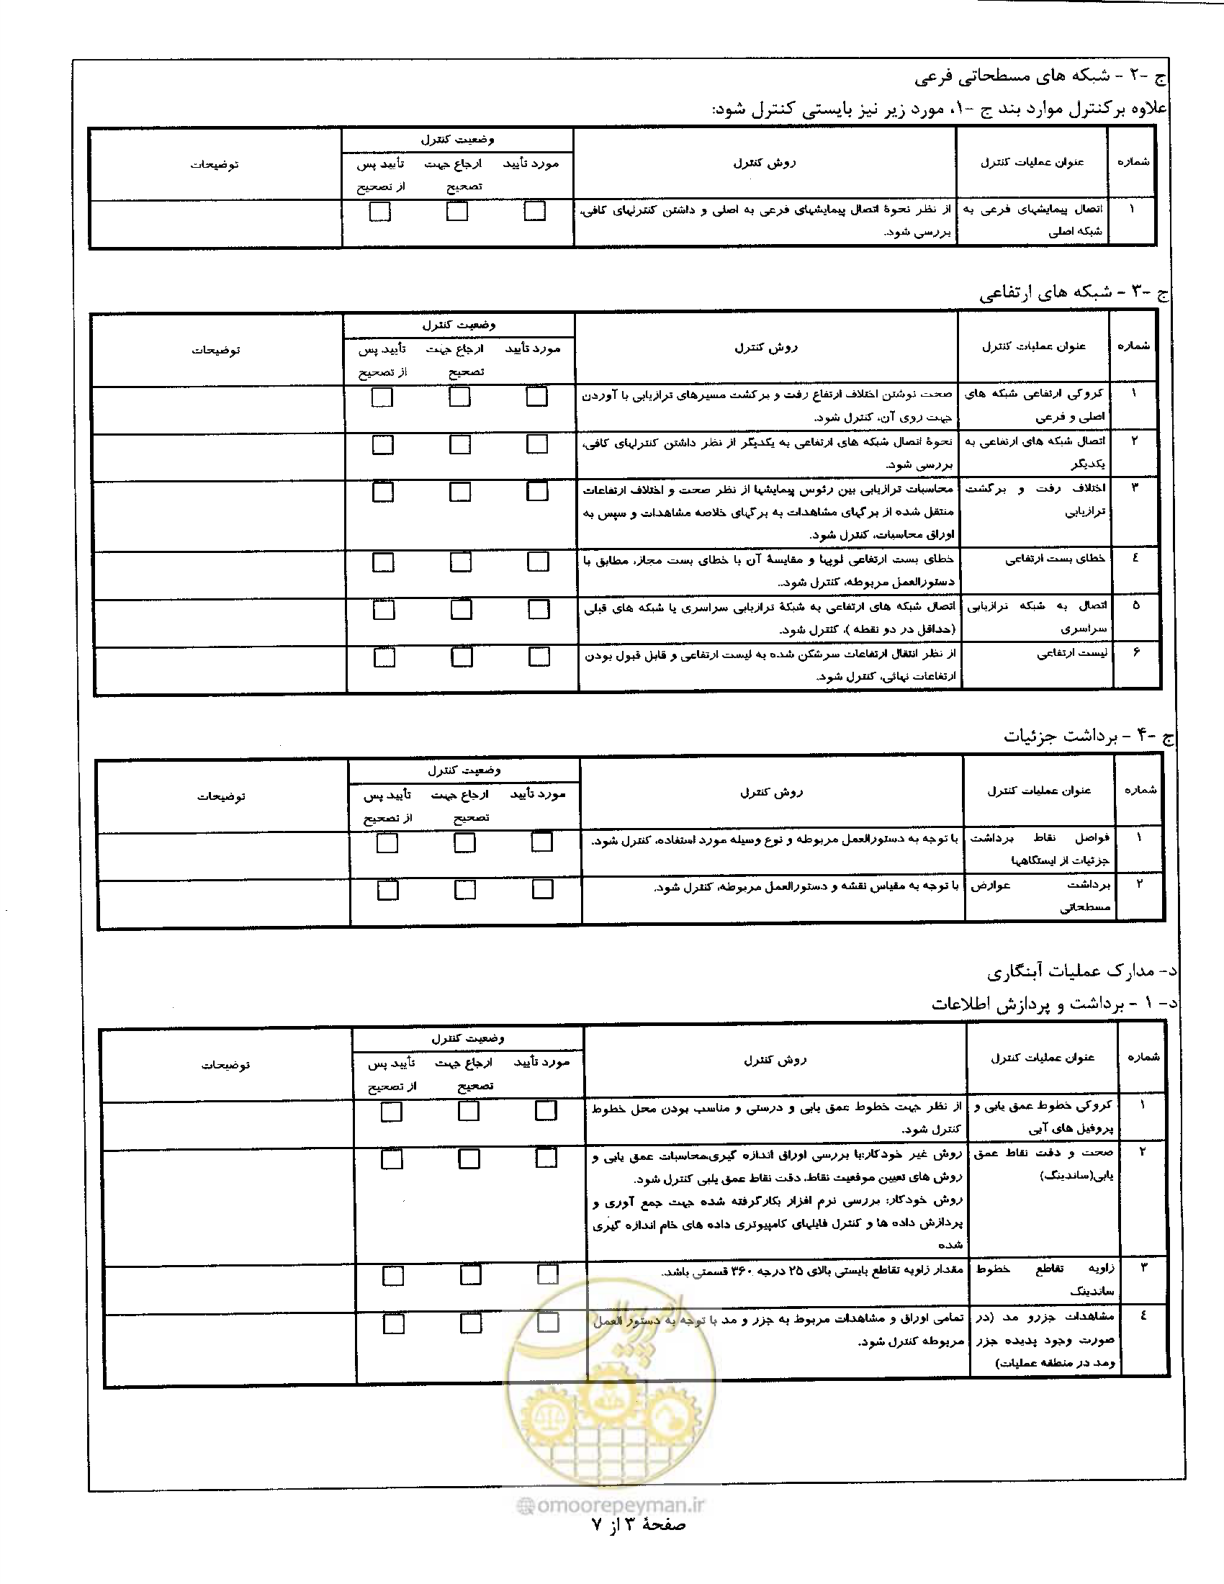 ج -۲ - شبکه های مسطحاتی فرعی
علاوه برکنترل موارد بند ج -۱، مورد زیر نیز بایستی کنترل شود:
شماره عنوان عملیات کنترل روش کنترل وضعیت کنترل توضیحات
مورد تأیید ارجاع جهت تأیید پس
تصحیح از تصحیح
۱ اتصال پیمایشهای فرعی به از نظر نحوۀ اتصال پیمایشهای فرعی به اصلی و داشتن کنترلهای کافی،
شبکه اصلی بررسی شود.
ج -۳ - شبکه های ارتفاعی
شماره عنوان عملیات کنترل روش کنترل وضعیت کنترل توضیحات
مورد تأیید ارجاع جهت تأیید پس
تصحیح از تصحیح
۱ کروکی ارتفاعی شبکه های صحت نوشتن اختلاف ارتفاع رفت و برکشت مسیرهای ترازیابی با آوردن
اصلی و فرعی جهت روی آن، کنترل شود.
۲ اتصال شبکه های ارتفاعی به نحوۀ اتصال شبکه های ارتفاعی به یکدیگر از نظر داشتن کنترلهای کافی،
یکدیگر بررسی شود.
۳ اختلاف رفت و برگشت محاسبات ترازیابی بین رئوس پیمایشها از نظر صحت و اختلاف ارتفاعات
ترازیابی منتقل شده از برگهای مشاهدات به برگهای خلاصه مشاهدات و سپس به
اوراق محاسبات، کنترل شود.
٤ خطای بست ارتفاعی خطای بست ارتفاعی لوپها و مقایسۀ آن با خطای بست مجاز، مطابق با
دستورالعمل مربوطه، کنترل شود..
۵ اتصال به شبکه ترازیابی اتصال شبکه های ارتفاعی به شبکۀ ترازیابی سراسری یا شبکه های قبلی
سراسری (حداقل در دو نقطه )، کنترل شود.
۶ لیست ارتفاعی از نظر انتقال ارتفاعات سرشکن شده به لیست ارتفاعی و قابل قبول بودن
ارتفاعات نهائی، کنترل شود.
ج -۴ - برداشت جزئیات
شماره عنوان عملیات کنترل روش کنترل وضعیت کنترل توضیحات
مورد تأیید ارجاع جهت تأیید پس
تصحیح از تصحیح
۱ فواصل نقاط برداشت با توجه به دستورالعمل مربوطه و نوع وسیله مورد استفاده، کنترل شود.
جزئیات از ایستگاهها
۲ برداشت عوارض با توجه به مقیاس نقشه و دستورالعمل مربوطه، کنترل شود.
مسطحاتی
د- مدارک عملیات آبنگاری
د- ۱ - برداشت و پردازش اطلاعات
شماره عنوان عملیات کنترل روش کنترل وضعیت کنترل توضیحات
مورد تأیید ارجاع جهت تأیید پس
تصحیح از تصحیح
۱ کروکی خطوط عمق یابی و از نظر جهت خطوط عمق یابی و درستی و مناسب بودن محل خطوط
پروفیل های آبی کنترل شود.
۲ صحت و دقت نقاط عمق روش غیر خودکار:با بررسی اوراق اندازه گیری،محاسبات عمق یابی و
یابی(ساندینگ) روش های تعیین موقعیت نقاط، دقت نقاط عمق یابی کنترل شود.
روش خودکار: بررسی نرم افزار بکارگرفته شده جهت جمع آوری و
پردازش داده ها و کنترل فایلهای کامپیوتری داده های خام اندازه گیری
شده
۳ زاویه تقاطع خطوط مقدار زاویه تقاطع بایستی بالای ۲۵ درجه ۳۶۰ قسمتی باشد.
ساندینگ
٤ مشاهدات جزرو مد (در تمامی اوراق و مشاهدات مربوط به جزر و مد با توجه به دستور العمل
صورت وجود پدیده جزر مربوطه کنترل شود.
ومد در منطقه عملیات)
امور پیمان
omoorepeyman.ir
صفحۀ ۳ از ۷